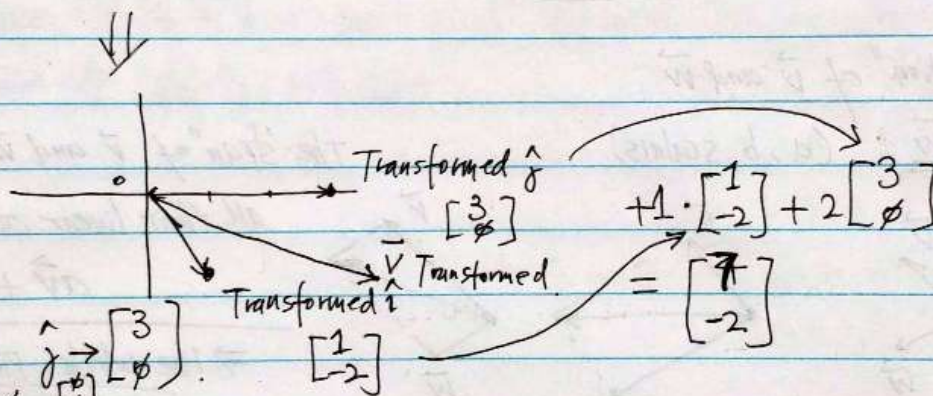 0
Transformed ĵ
[3
ø]
+1 · [1
-2] + 2 [3
ø]
v⃗ Transformed
Transformed î
= [7
-2]
ĵ → [3
ø].
[1
-2]
[ø]